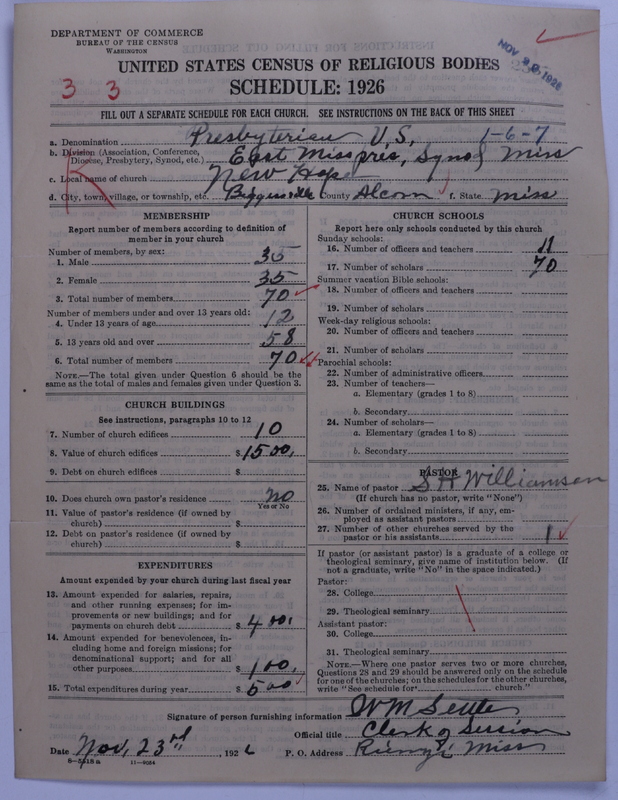 DEPARTMENT OF COMMERCE
BUREAU OF THE CENSUS
WASHINGTON
NOV 26 1926
UNITED STATES CENSUS OF RELIGIOUS BODIES
SCHEDULE: 1926
3 3
FILL OUT A SEPARATE SCHEDULE FOR EACH CHURCH. SEE INSTRUCTIONS ON THE BACK OF THIS SHEET
a. Denomination Presbyterian U.S. 1-6-7
b. Division (Association, Conference, Diocese, Presbytery, Synod, etc.) East Misspris, Synod Miss
c. Local name of church New Hope
d. City, town, village, or township, etc. Biggersville County Alcorn f. State Miss
MEMBERSHIP
Report number of members according to definition of member in your church
Number of members, by sex:
1. Male 35
2. Female 35
3. Total number of members 70
Number of members under and over 13 years old:
4. Under 13 years of age 12
5. 13 years old and over 58
6. Total number of members 70
NOTE.—The total given under Question 6 should be the same as the total of males and females given under Question 3.
CHURCH BUILDINGS
See instructions, paragraphs 10 to 12
7. Number of church edifices 10
8. Value of church edifices $ 1500,
9. Debt on church edifices $
10. Does church own pastor's residence no
Yes or No
11. Value of pastor's residence (if owned by church) $
12. Debt on pastor's residence (if owned by church) $
EXPENDITURES
Amount expended by your church during last fiscal year
13. Amount expended for salaries, repairs, and other running expenses; for improvements or new buildings; and for payments on church debt $ 400,
14. Amount expended for benevolences, including home and foreign missions; for denominational support; and for all other purposes $ 100,
15. Total expenditures during year $ 500
CHURCH SCHOOLS
Report here only schools conducted by this church
Sunday schools:
16. Number of officers and teachers 11
17. Number of scholars 70
Summer vacation Bible schools:
18. Number of officers and teachers
19. Number of scholars
Week-day religious schools:
20. Number of officers and teachers
21. Number of scholars
Parochial schools:
22. Number of administrative officers
23. Number of teachers—
a. Elementary (grades 1 to 8)
b. Secondary
24. Number of scholars—
a. Elementary (grades 1 to 8)
b. Secondary
PASTOR
25. Name of pastor S H Williamson
(If church has no pastor, write "None")
26. Number of ordained ministers, if any, employed as assistant pastors
27. Number of other churches served by the pastor or his assistants 1
If pastor (or assistant pastor) is a graduate of a college or theological seminary, give name of institution below. (If not a graduate, write "No" in the space indicated.)
Pastor:
28. College
29. Theological seminary
Assistant pastor:
30. College
31. Theological seminary
NOTE.—Where one pastor serves two or more churches, Questions 28 and 29 should be answered only on the schedule for one of the churches; on the schedules for the other churches, write "See schedule for church."
Signature of person furnishing information W M
Official title Clerk of Session
Date Nov, 23rd, 1926 P. O. Address Rienzi Miss
8-5518 a 11-9084